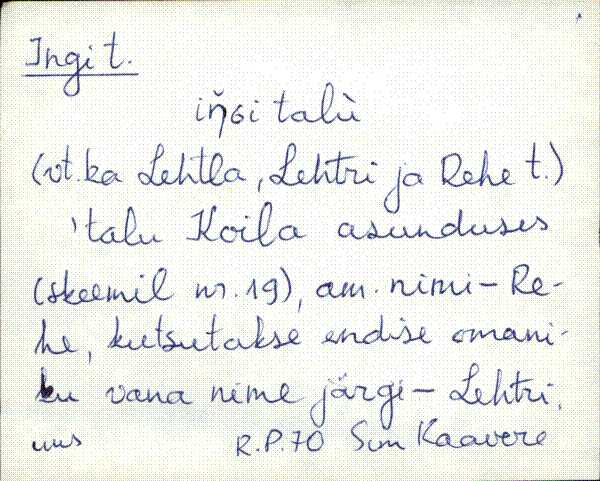 Ingi t.
iŋ̆ɢi talù
(vt. ka Lehtla, Lehtri ja Rehe t.)
'talu Koila asunduses
(skeemil nr. 19), am. nimi – Re-
he, kutsutakse endise omani-
ku vana nime järgi – Lehtri,
uus R.P.70 Sim Kaavere